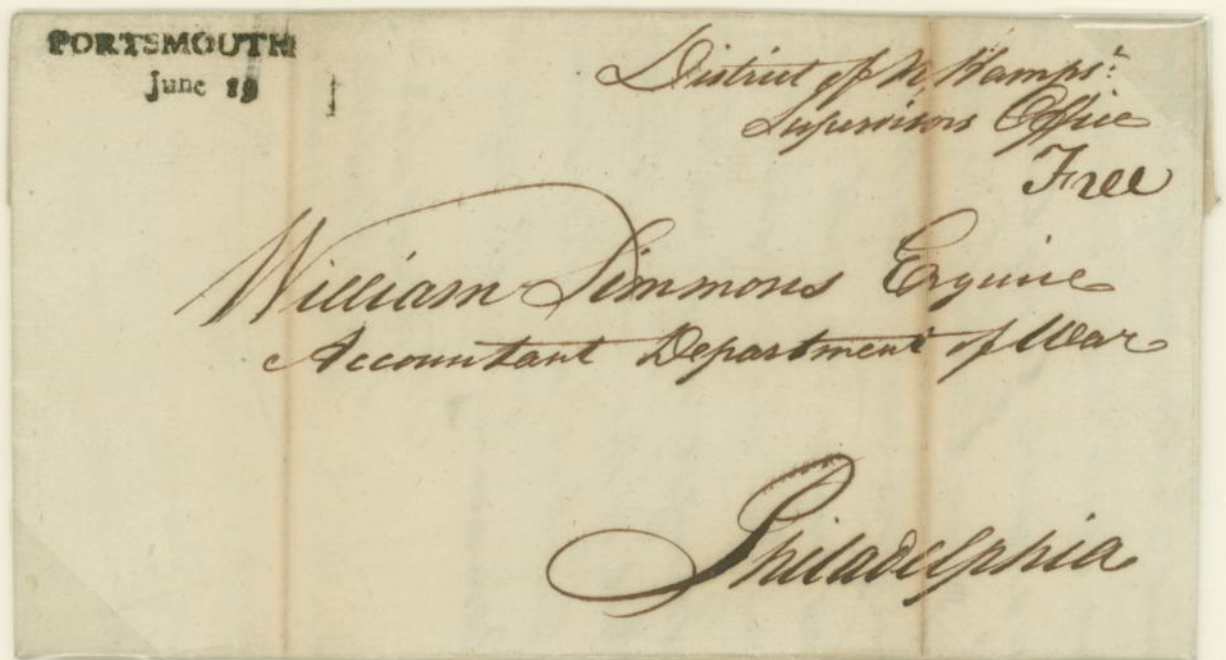 PORTSMOUTH
June 19
District of N Hamps.t
Supervisors Office
Free
William Simmons Esquire
Accountant Department of War
Philadelphia